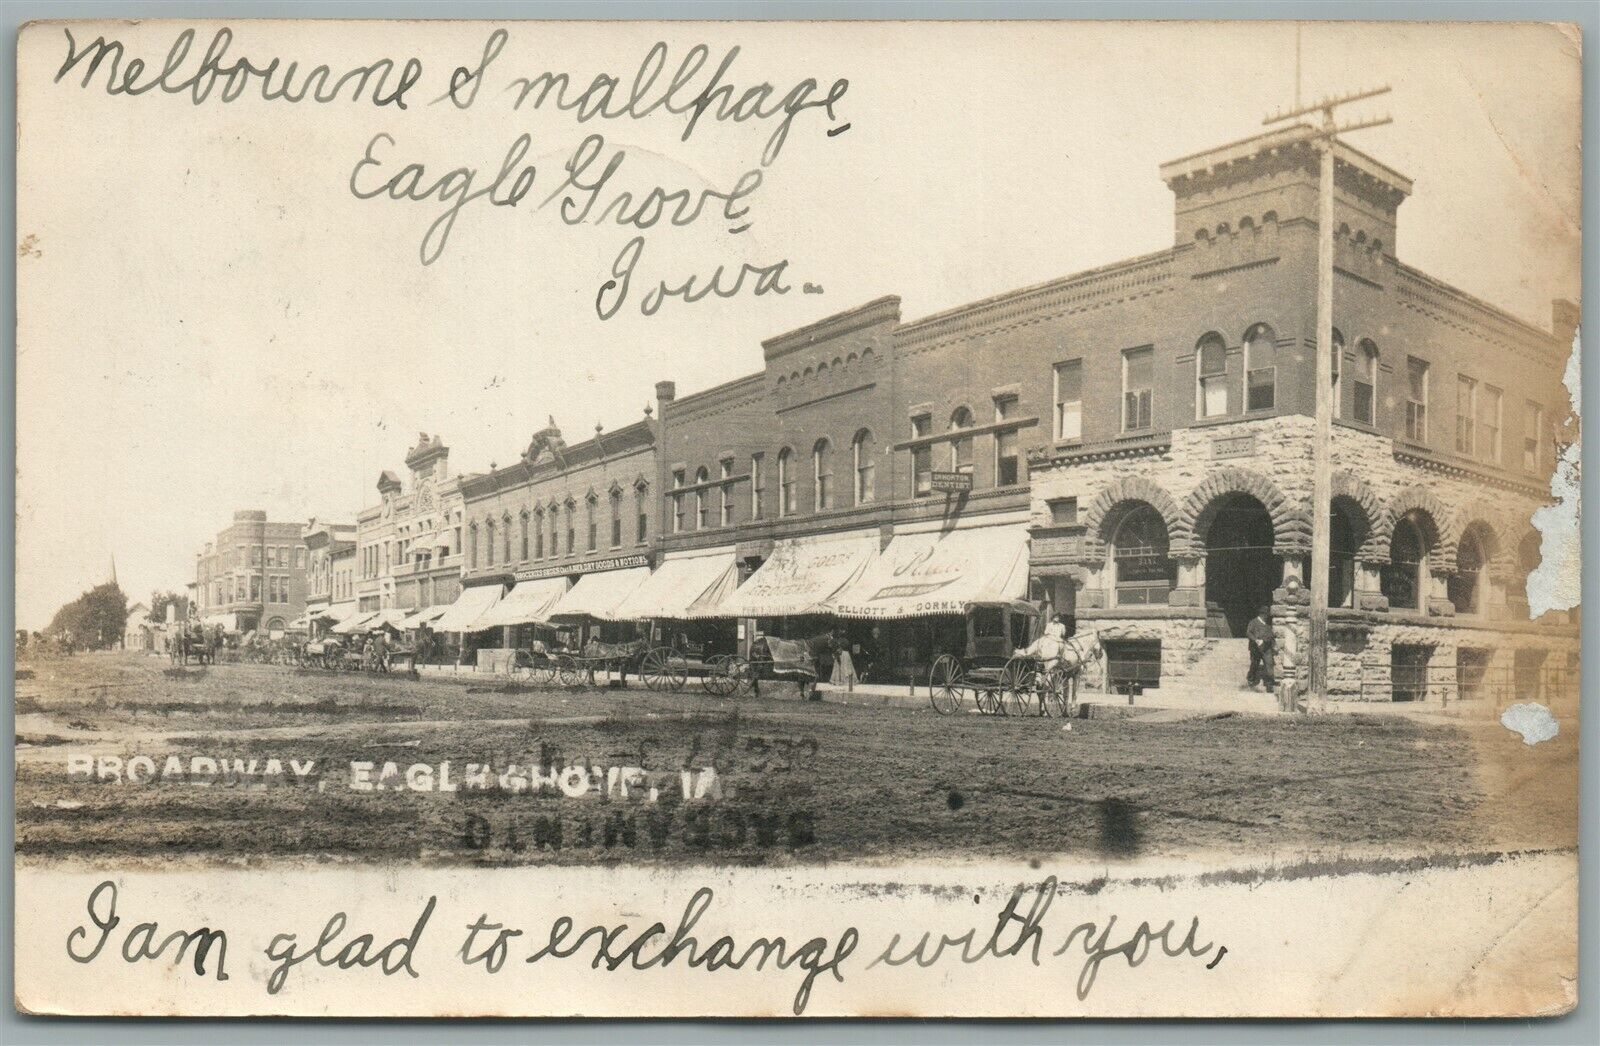 Melbourne Smallpage,
Eagle Grove,
Iowa.
BANK
DR NORTON
DENTIST
GROCERIES DRY GOODS & NOTIONS
ELLIOTT & GORMLY
BROADWAY, EAGLE GROVE, IA.
DEC 27 3
SACRAMENTO
I am glad to exchange with you,